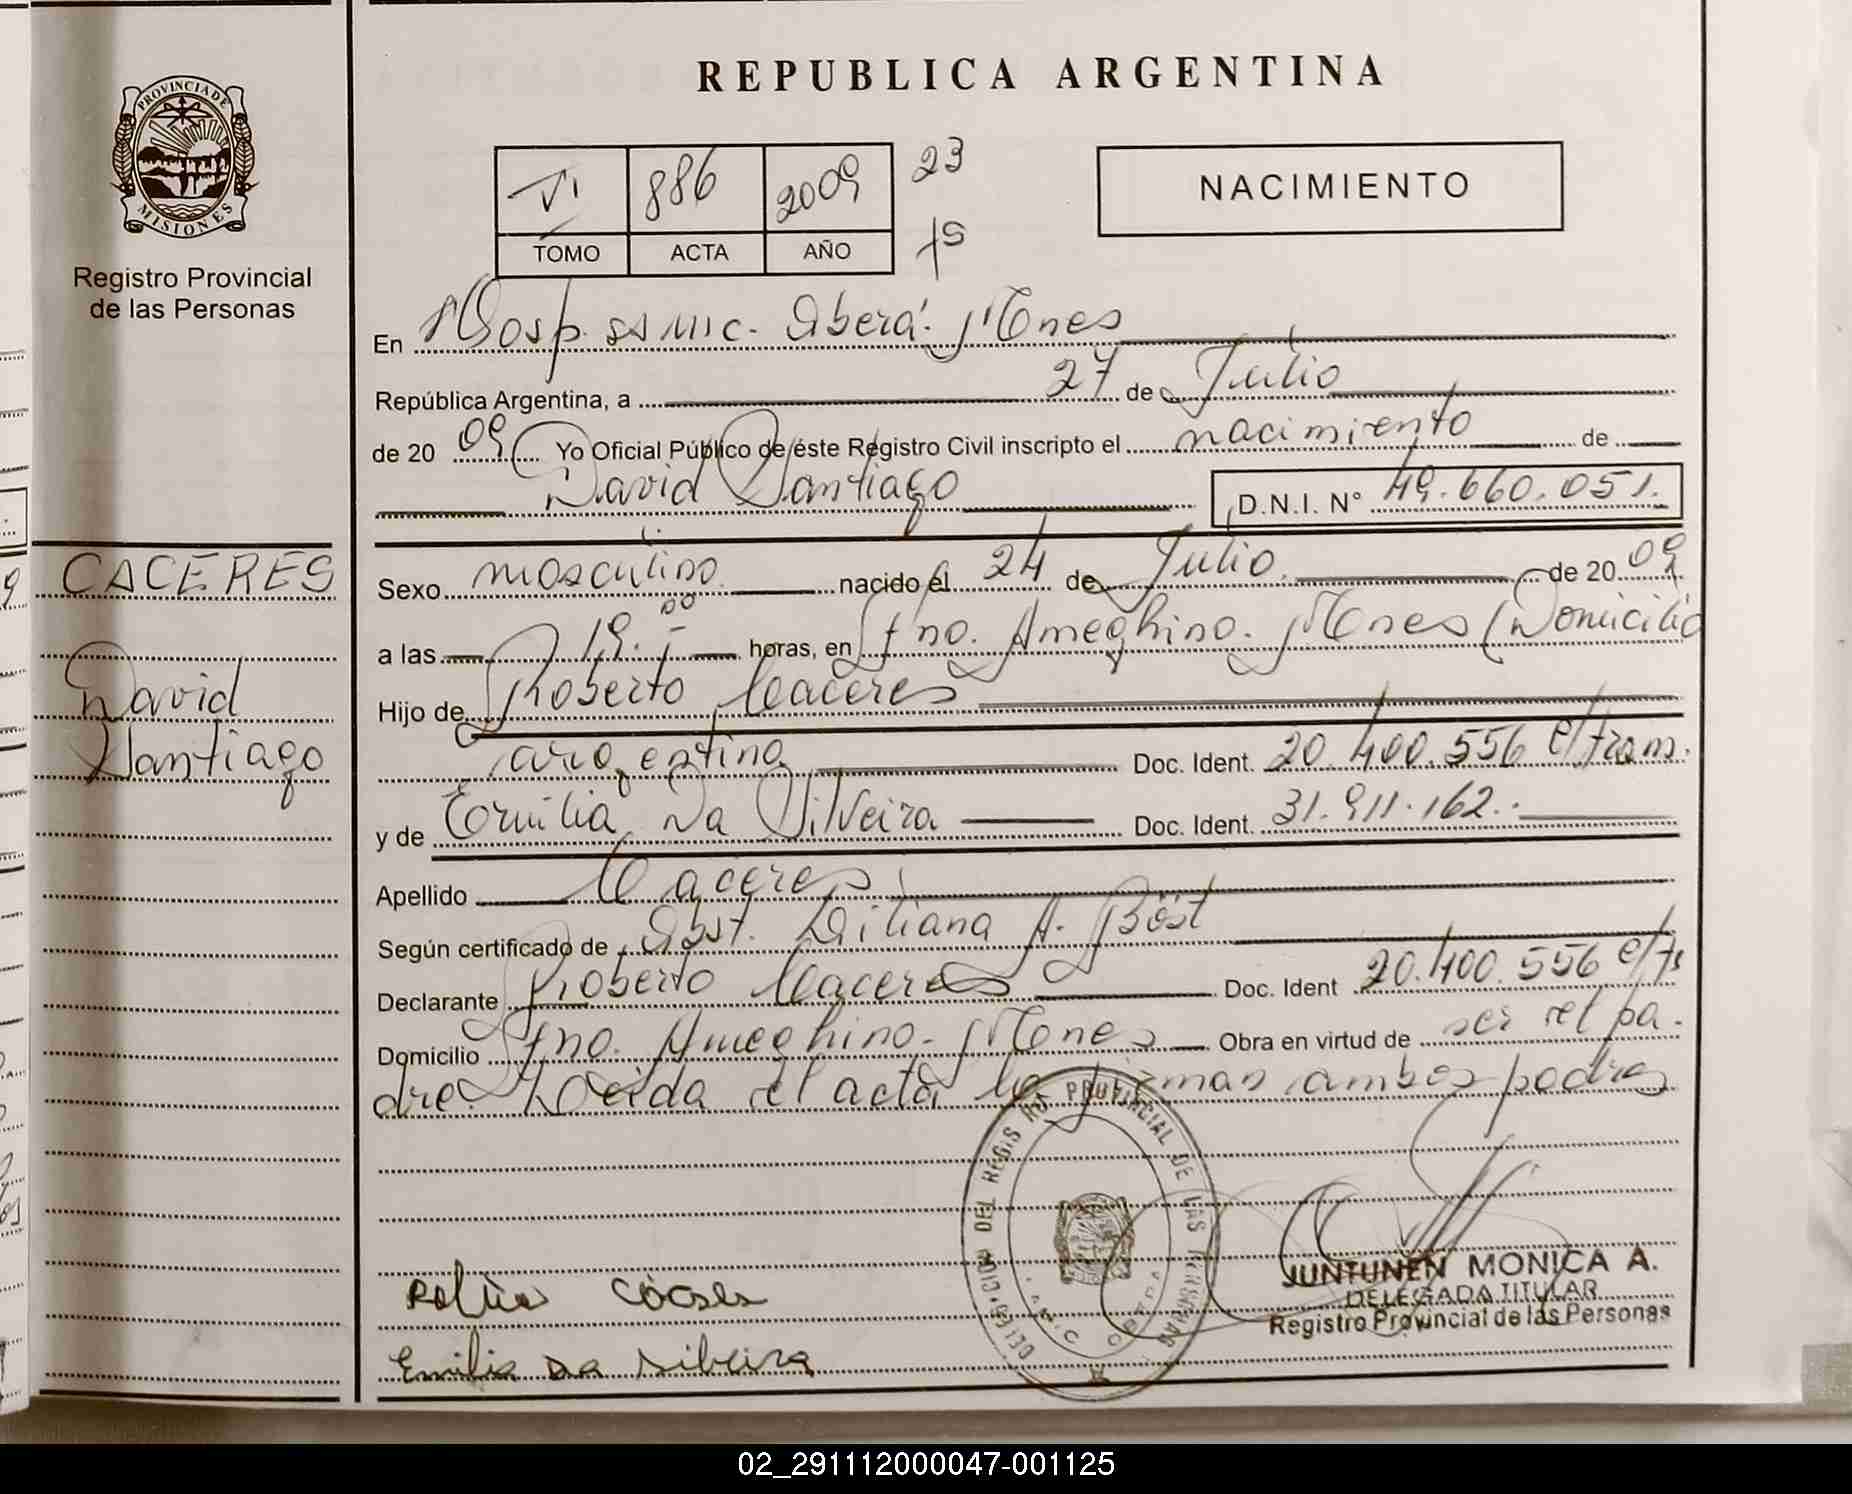 REPUBLICA ARGENTINA
PROVINCIA DE
MISIONES
Registro Provincial
de las Personas
VI 886 2009 23
TOMO ACTA AÑO 75
NACIMIENTO
En Hosp. SAMIC. Oberá. Mones
República Argentina, a 27 de Julio
de 20 09 Yo Oficial Público de éste Registro Civil inscripto el nacimiento de
David Santiago D.N.I. N° 49.660.051.
CACERES
David
Santiago
Sexo masculino nacido el 24 de Julio de 20 09
a las 19.00 horas, en Fno. Ameghino. Mones (Domicilio
Hijo de Roberto Caceres
argentina Doc. Ident. 20.400.556 e/tram.
y de Emilia Da Silveira Doc. Ident. 31.911.162.
Apellido Caceres
Según certificado de Obst. Liliana A. Böst
Declarante Roberto Caceres Doc. Ident 20.400.556 e/
Domicilio Fno. Ameghino. Mones Obra en virtud de ser el pa-
dre. Leida el acta la firman ambos padres
DEL REGISTRO PROVINCIAL DE LAS PERSONAS
JUNTUNEN MONICA A.
DELEGADA TITULAR
Registro Provincial de las Personas
Emilia Da Silveira
02_291112000047-001125